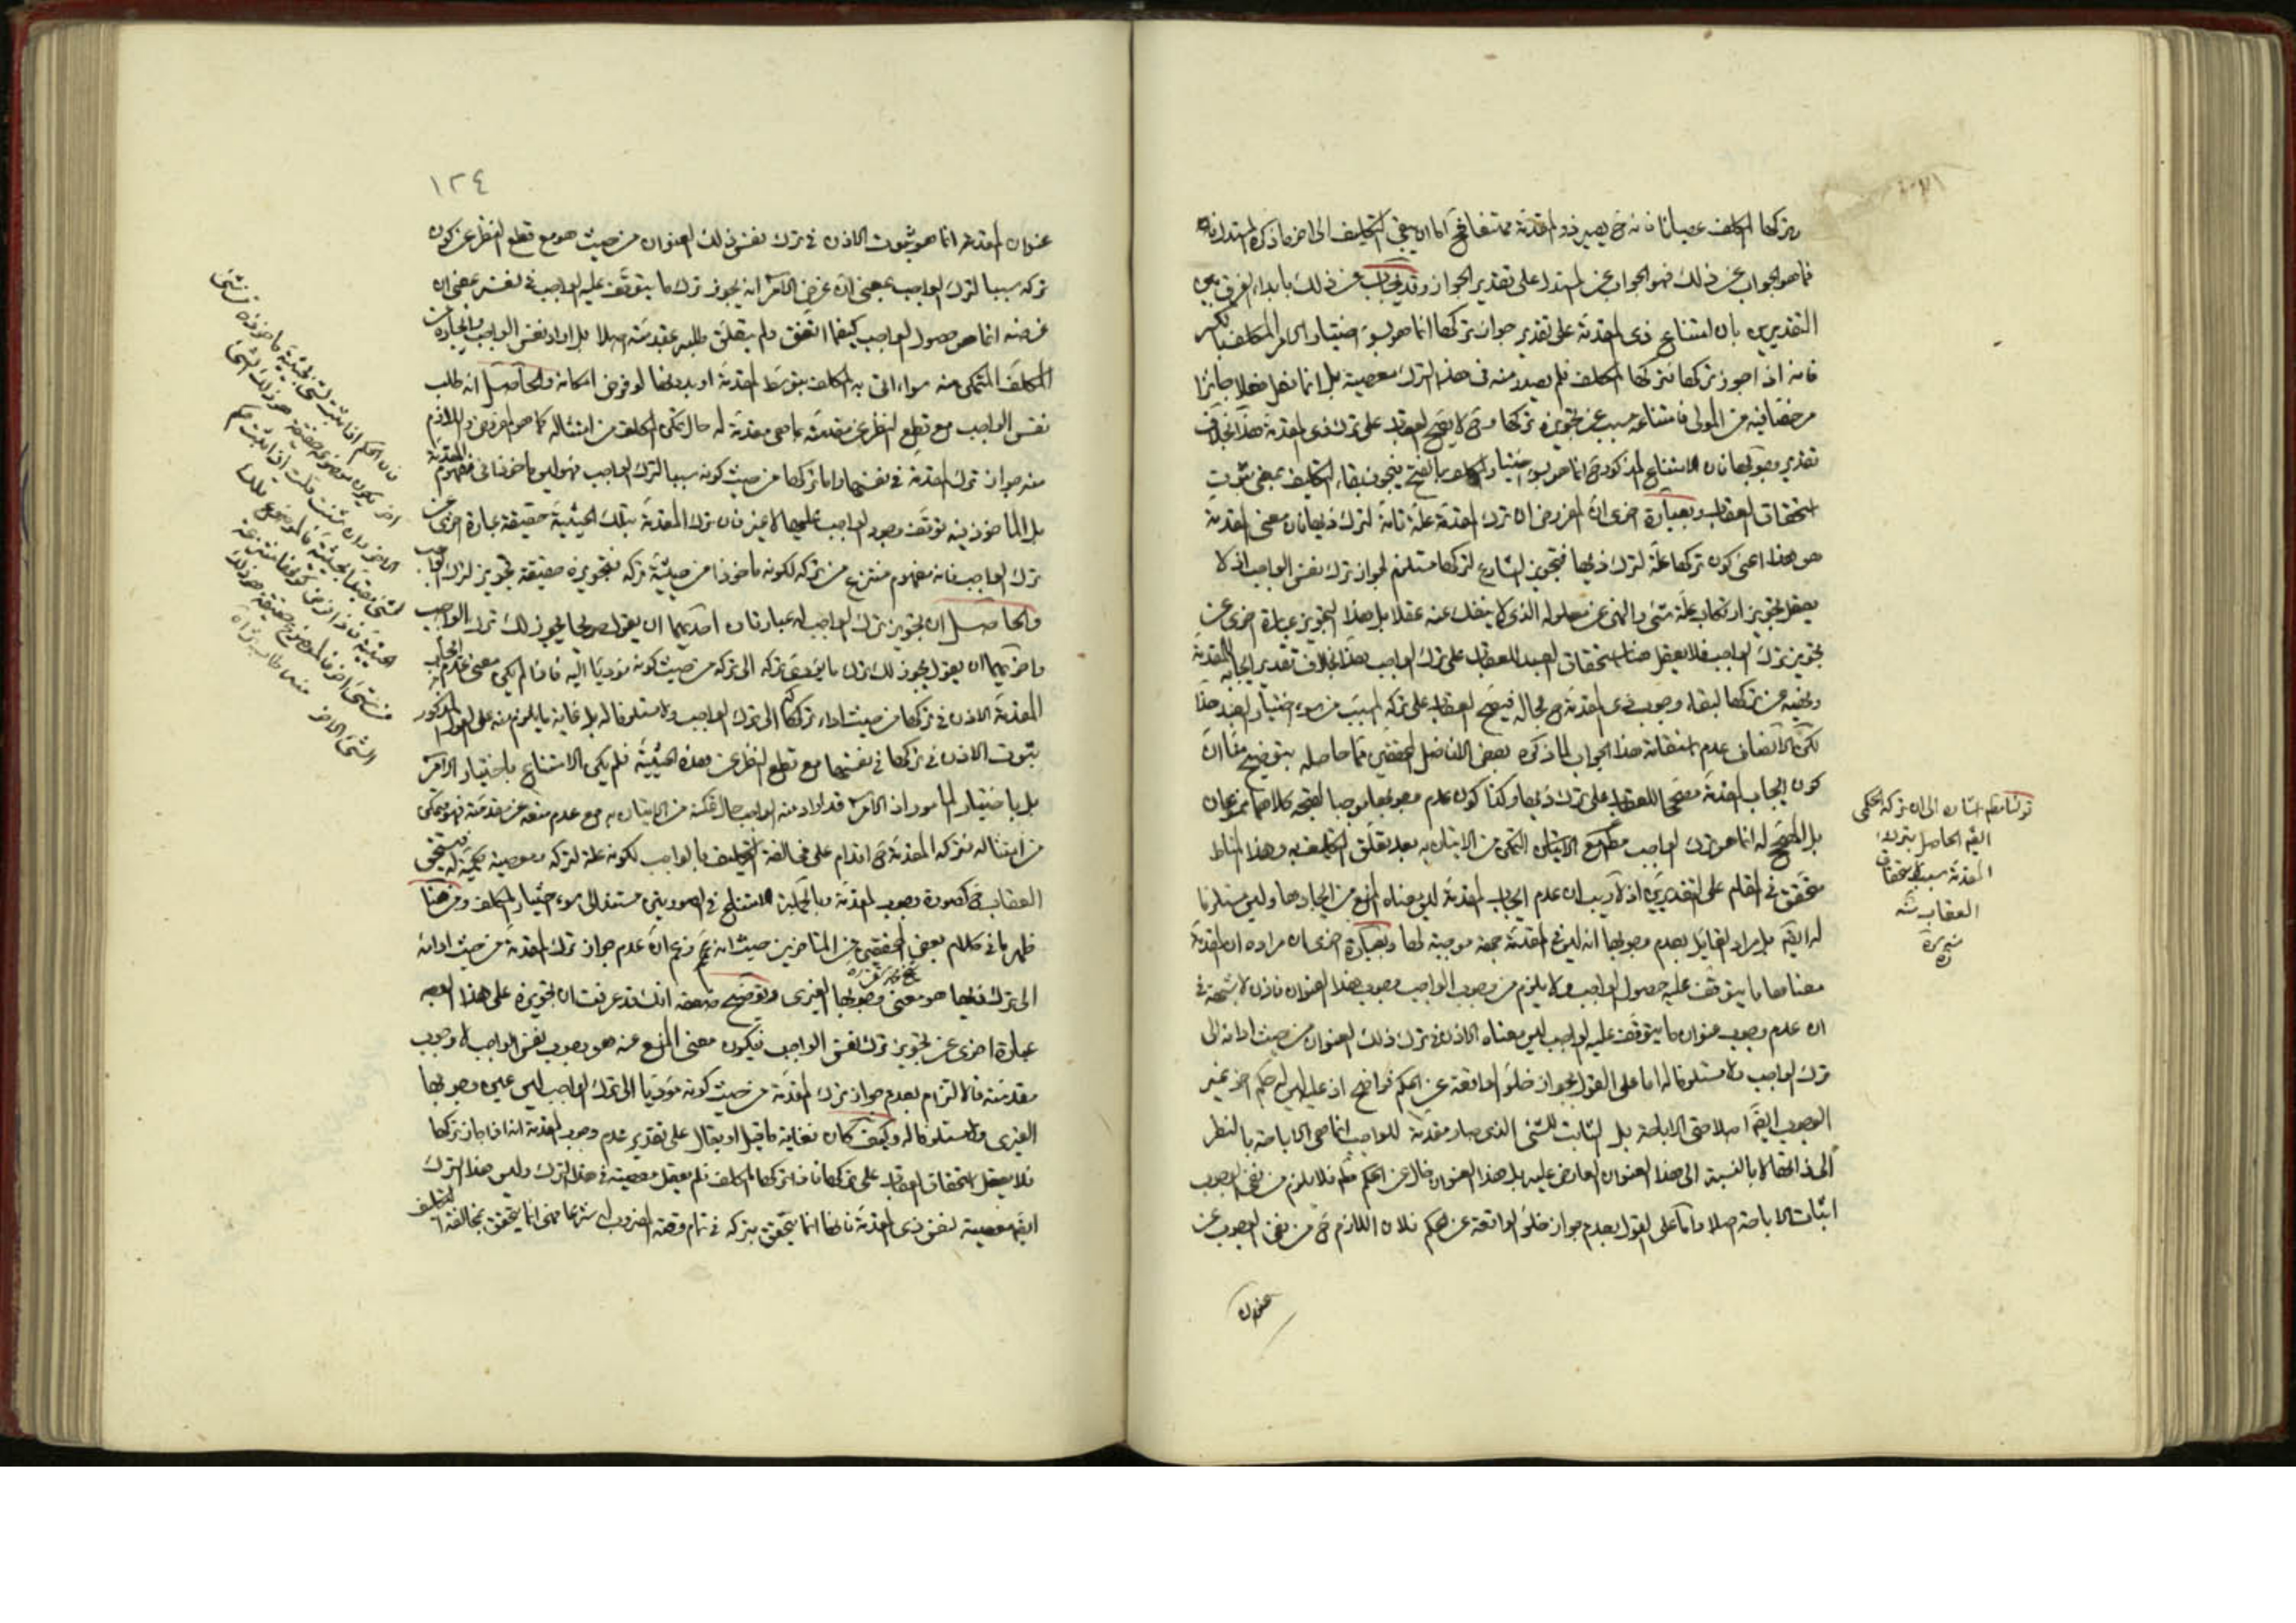 وتركها المكلف عصيانا فانه ح يصير ذو المقدمة ممتنعا فح اما ان يبقى التكليف الى اخر ما ذكره المستدل
فما هو الجواب عن ذلك فهو الجواب عن المستدل على تقدير الجواز وقد يجاب عن ذلك بابداء الفرق بين
التقديرين بان امتناع ذى المقدمة على تقدير جواز تركها انما هو بسوء اختيار الامر المكلف بالكسر
فانه اذا جوز تركها فتركها المكلف فلم يصدر منه فى هذا الترك معصية بل انما فعل فعلا جائزا
مرخصا فيه من المولى فامتناعه مسبب عن تجويزه تركها وح لا يصح العقاب على ترك ذى المقدمة هذا بخلاف
تقدير وجوبها فان الامتناع المذكور ح انما هو بسوء اختيار المكلف بالفتح فيجوز بقاء التكليف بمعنى ثبوت
استحقاق العقاب وبعبارة اخرى ان المفروض ان ترك المقدمة علة تامة لترك ذيها فان معنى المقدمة
هو هذا اعنى كون تركها علة لترك ذيها فتجويز الشارع لتركها مستلزم لجواز ترك نفس الواجب اذ لا
يعقل تجويز ارتكاب علة شئ والنهى عن معلوله الذى لا ينفك عنه عقلا بل هذا التجويز عبارة اخرى عن
تجويز ترك الواجب فلا يعقل هنا استحقاق العبد للعقاب على ترك الواجب بهذا بخلاف تقدير ايجابه للمقدمة
ونهيه عن تركها لبقاء وجوب ذى المقدمة ح بحاله فيصح العقاب على تركه المسبب من سوء اختيار العبد هذا
لكن الانصاف عدم استقامة هذا الجواب لما ذكره بعض الافاضل المحققين مما حاصله بتوضيح منا ان
كون ايجاب المقدمة مصححا للعقاب على ترك ذيها وكذا كون عدم وجوبها موجبا لقبحه كلاهما ممنوعان
بل المصحح له انما هو ترك الواجب مع التمكن من الاتيان به بعد تعلق التكليف به وهذا المناط
متحقق فى المقام على التقديرين اذ لا ريب ان عدم ايجاب المقدمة ليس معناه المنع من ايجادها وليس مستلزما
له ايضا بل مراد القايل بعدم وجوبها انه ليس فى المقدمة جهة موجبة لها وبعبارة اخرى ان مراده ان المقدمة
معناها ما يتوقف عليه حصول الواجب ولا يلزم من وجوب الواجب وجوب هذا العنوان فاذن لا شبهة فى
ان عدم وجوب عنوان ما يتوقف عليه الواجب ليس معناه الاذن فى ترك ذلك العنوان من حيث ادائه الى
ترك الواجب ولا مستلزما له اما على القول بجواز خلو الواقعة عن الحكم فواضح اذ عليه ليس له حكم اخر غير
الوجوب ايضا اصلا حتى الاباحة بل الثابت للشئ الذى صار مقدمة للواجب انما هى الاباحة بالنظر
الى ذاتها لا بالنسبة الى هذا العنوان العارض عليه بل هذا العنوان خال عن الحكم فلا يلزم من نفى الوجوب
اثبات الاباحة اصلا واما على القول بعدم جواز خلو الواقعة عن الحكم فلان اللازم ح من نفى الوجوب عن
عنوان
قولنا ايضا اشارة الى ان تركه الحكمى
ايضا الحاصل بترك
المقدمة سبب لاستحقاق
العقاب
منه
١٢٤
عنوان المقدمة انما هو ثبوت الاذن فى ترك نفس ذلك العنوان من حيث هو مع قطع النظر عن كون
تركه سببا لترك الواجب بمعنى ان غرض الامر انه يجوز ترك ما يتوقف عليه الواجب فى نفسه بمعنى ان
غرضه انما هو حصول الواجب كيفما اتفق ولم يتعلق طلبه بمقدمته اصلا بل اراد نفس الواجب وايجاده من
المكلف المتمكن منه سواء اتى به المكلف بتوسط المقدمة او بدونها لو فرض امكانه والحاصل انه طلب
نفس الواجب مع قطع النظر عن مقدمته بما هى مقدمة له حال تمكن المكلف من امتثاله كما هو المفروض واللازم
منه جواز ترك المقدمة فى نفسها واما تركها من حيث كونه سببا لترك الواجب فهو ليس ماخوذا فى مفهوم المقدمة
بل الماخوذ فيه توقف وجود الواجب عليها لا غير فان ترك المقدمة بتلك الحيثية حقيقة عبارة اخرى عن
ترك الواجب فانه مفهوم منتزع من تركه لكونه ماخوذا من حيثية تركه فتجويزه حقيقة تجويز لترك الواجب
والحاصل ان لتجويز ترك الواجب له عبارتان احديهما ان يقول صريحا يجوز لك ترك الواجب
واخريهما ان يقول يجوز لك ترك ما يؤدى تركه الى تركه من حيث كونه مؤديا اليه فاذا لم يكن معنى عدم ايجاب
المقدمة الاذن فى تركها من حيث اداء تركها الى ترك الواجب ولا مستلزما له بل غاية ما يلزم منه على القول المذكور
ثبوت الاذن فى تركها فى نفسها مع قطع النظر عن هذه الحيثية فلم يكن الامتناع باختيار الامر
بل باختيار المامور اذ الامر قد اراد منه الواجب حال تمكنه من الاتيان به مع عدم منعه عن مقدمته فهو متمكن
من امتثاله فتركه المقدمة ح اقدام على مخالفة التكليف بالواجب لكونه علة لتركه ومعصية حكمية له فيستحق
العقاب ح كصورة وجوب المقدمة وبالجملة الامتناع فى الصورتين مستند الى سوء اختيار المكلف ومن هنا
ظهر ما فى كلام بعض المحققين من المتاخرين حيث انه زعم ان عدم جواز ترك المقدمة من حيث ادائه
الى ترك ذيها هو معنى وجوبها الغيرى وتوضيح ضعفه انك قد عرفت ان تجويزه على هذا الوجه
عبارة اخرى عن تجويز ترك نفس الواجب فيكون معنى المنع عنه هو وجوب نفس الواجب لا وجوب
مقدمته فالالتزام بعدم جواز ترك المقدمة من حيث كونه مؤديا الى ترك الواجب ليس عين وجوبها
الغيرى ولا مستلزما له وكيف كان فغاية ما قيل او يقال على تقدير عدم وجوب المقدمة انه اذا جاز تركها
فلا يعقل استحقاق العقاب على تركها فاذا تركها المكلف فلم يعقل معصيته فى هذا الترك وليس هذا الترك
ايضا معصية لنفس ذى المقدمة فانها انما يتحقق بتركه فى تمام وقته المضروب له شرعا فهى انما يتحقق بمخالفة التكليف
فان الحكم اذا ثبت لشئ بحيثية ماخوذة من شئ
اخر يكون موضوعه حقيقة هو ذلك الشئ